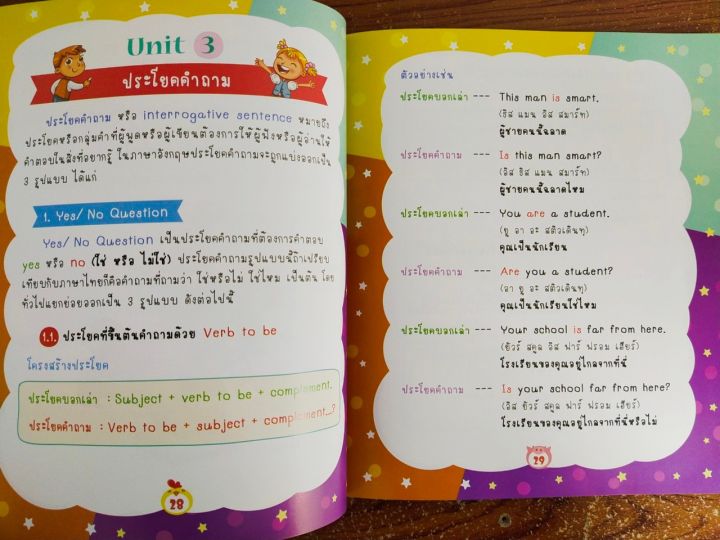 Unit 3
ประโยคคำถาม
ประโยคคำถาม หรือ interrogative sentence หมายถึง
ประโยคหรือกลุ่มคำที่ผู้พูดหรือผู้เขียนต้องการให้ผู้ฟังหรือผู้อ่านให้
คำตอบในสิ่งที่อยากรู้ ในภาษาอังกฤษประโยคคำถามจะถูกแบ่งออกเป็น
3 รูปแบบ ได้แก่
1. Yes/ No Question
Yes/ No Question เป็นประโยคคำถามที่ต้องการคำตอบ
yes หรือ no (ใช่ หรือ ไม่ใช่) ประโยคคำถามรูปแบบนี้ถ้าเปรียบ
เทียบกับภาษาไทยก็คือคำถามที่ถามว่า ใช่หรือไม่ ใช่ไหม เป็นต้น โดย
ทั่วไปแยกย่อยออกเป็น 3 รูปแบบ ดังต่อไปนี้
1.1. ประโยคที่ขึ้นต้นคำถามด้วย Verb to be
โครงสร้างประโยค
ประโยคบอกเล่า : Subject + verb to be + complement.
ประโยคคำถาม : Verb to be + subject + complement...?
28
ตัวอย่างเช่น
ประโยคบอกเล่า --- This man is smart.
(ธิส แมน อิส สมาร์ท)
ผู้ชายคนนี้ฉลาด
ประโยคคำถาม --- Is this man smart?
(อิส ธิส แมน สมาร์ท)
ผู้ชายคนนี้ฉลาดไหม
ประโยคบอกเล่า --- You are a student.
(ยู อา อะ สติวเด้นทฺ)
คุณเป็นนักเรียน
ประโยคคำถาม --- Are you a student?
(อา ยู อะ สติวเด้นทฺ)
คุณเป็นนักเรียนใช่ไหม
ประโยคบอกเล่า --- Your school is far from here.
(ยัวร์ สคูล อิส ฟาร์ ฟรอม เฮียร์)
โรงเรียนของคุณอยู่ไกลจากที่นี่
ประโยคคำถาม --- Is your school far from here?
(อิส ยัวร์ สคูล ฟาร์ ฟรอม เฮียร์)
โรงเรียนของคุณอยู่ไกลจากที่นี่หรือไม่
29